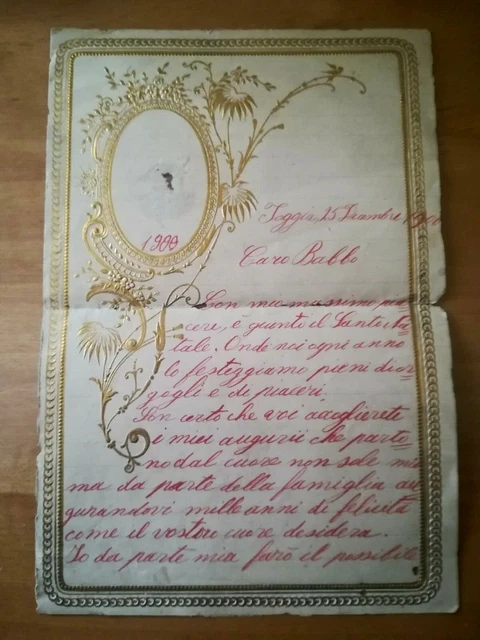 1900
Foggia, 25 Dicembre 1900
Caro Babbo
Con mio massimo pia=
cere, è giunto il Santo Na
tale. Onde noi ogni anno
lo festeggiamo pieni di or=
gogli e di piaceri.
Son certo che voi accoglierete
i miei augurii che parto=
no dal cuore non solo mio
ma da parte della famiglia au
gurandovi mille anni di felicità
come il vostro cuore desidera.
Io da parte mia farò il possibile